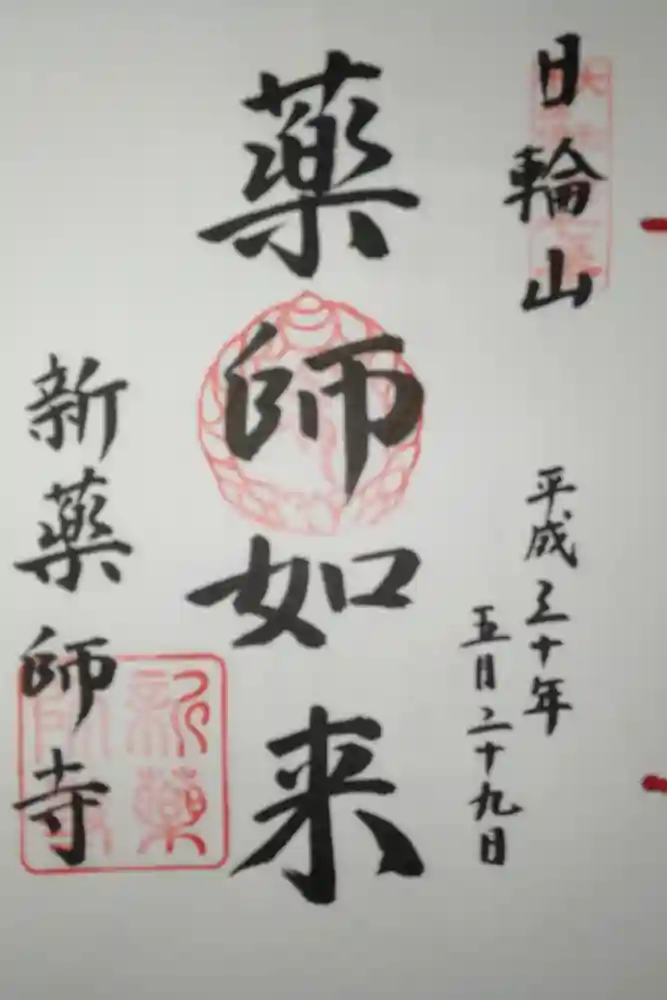 日輪山
平成三十年
五月二十九日
薬師如来
新薬師寺
新薬師寺